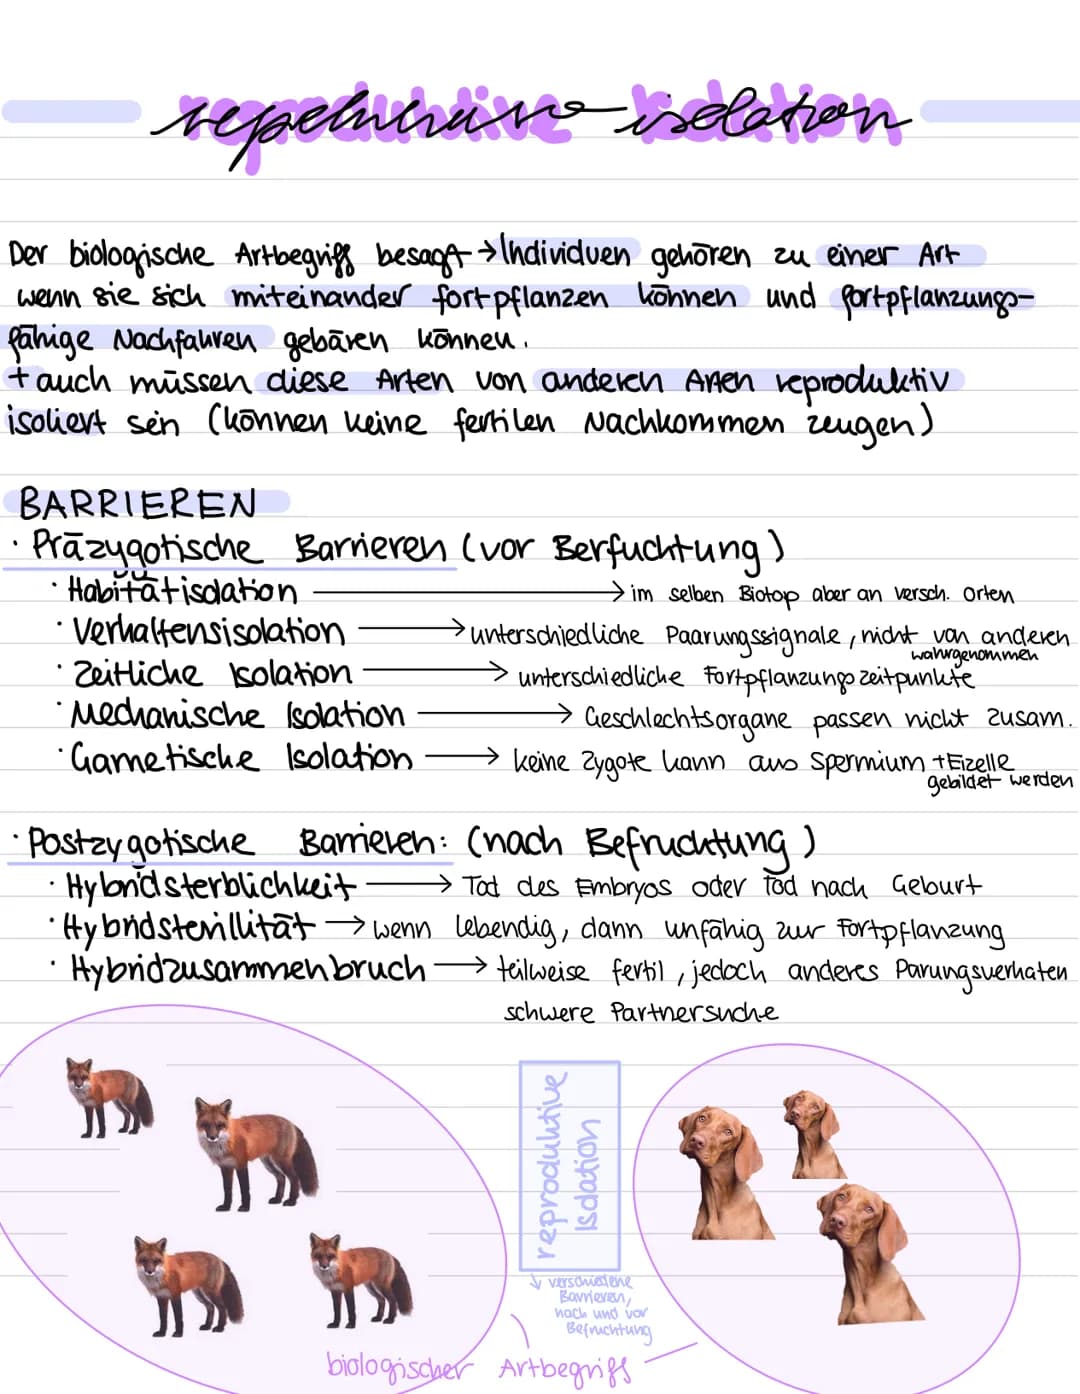 reproduktive isolation
Der biologische Artbegriff besagt → Individuen gehören zu einer Art
wenn sie sich miteinander fortpflanzen können und fortpflanzungs-
fähige Nachfahren gebären können.
+ auch müssen diese Arten von anderen Arten reproduktiv
isoliert sein (können keine fertilen Nachkommen zeugen)
BARRIEREN
· Präzygotische Barrieren (vor Berfuchtung)
· Habitätisolation → im selben Biotop aber an versch. Orten
· Verhaltensisolation → unterschiedliche Paarungssignale, nicht von anderen
wahrgenommen
· Zeitliche Isolation → unterschiedliche Fortpflanzungszeitpunkte
· Mechanische Isolation → Geschlechtsorgane passen nicht zusam.
· Gametische Isolation → keine Zygote kann aus Spermium + Eizelle
gebildet werden
· Postzygotische Barrieren: (nach Befruchtung)
· Hybridsterblichkeit → Tod des Embryos oder Tod nach Geburt
· Hybridsterillität → wenn lebendig, dann unfähig zur Fortpflanzung
· Hybridzusammenbruch → teilweise fertil, jedoch anderes Parungsverhaten
schwere Partnersuche
reproduktive
Isolation
↓ verschiedene
Barrieren,
nach und vor
Befruchtung
biologischer Artbegriff